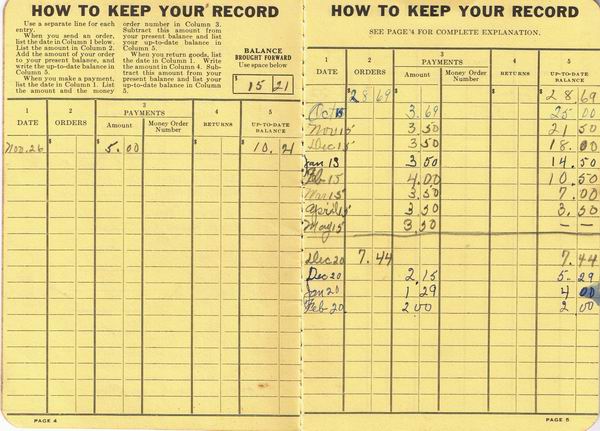 HOW TO KEEP YOUR RECORD
Use a separate line for each
entry.
When you send an order,
list the date in Column 1 below.
List the amount in Column 2.
Add the amount of your order
to your present balance, and
write the up-to-date balance in
Column 5.
When you make a payment,
list the date in Column 1. List
the amount and the money
order number in Column 3.
Subtract this amount from
your present balance and list
your up-to-date balance in
Column 5.
When you return goods, list
the date in Column 1. Write
the amount in Column 4. Sub-
tract this amount from your
present balance and list your
up-to-date balance in Column
5.
BALANCE
BROUGHT FORWARD
Use space below
$ 15 21
1 2 3 4 5
DATE ORDERS PAYMENTS RETURNS UP-TO-DATE BALANCE
Amount Money Order Number
Nov. 26 $ $ 5.00 $ $ 10. 21
PAGE 4
HOW TO KEEP YOUR RECORD
SEE PAGE 4 FOR COMPLETE EXPLANATION.
1 2 3 4 5
DATE ORDERS PAYMENTS RETURNS UP-TO-DATE BALANCE
Amount Money Order Number
$ 28 69 $ $ $ 28, 69
Oct 15 3.69 25 00
Nov 15 3.50 21 50
Dec 15 3.50 18. 00
Jan 13 3 50 14. 50
Feb 15 4.00 10. 50
Mar 15 3.50 7. 00
April 15 3.50 3. 50
May 15 3.50 – –
Dec 20 7.44 7. 44
Dec 20 2.15 5- 29
Jan 20 1 29 4 00
Feb 20 2 00 2 00
PAGE 5